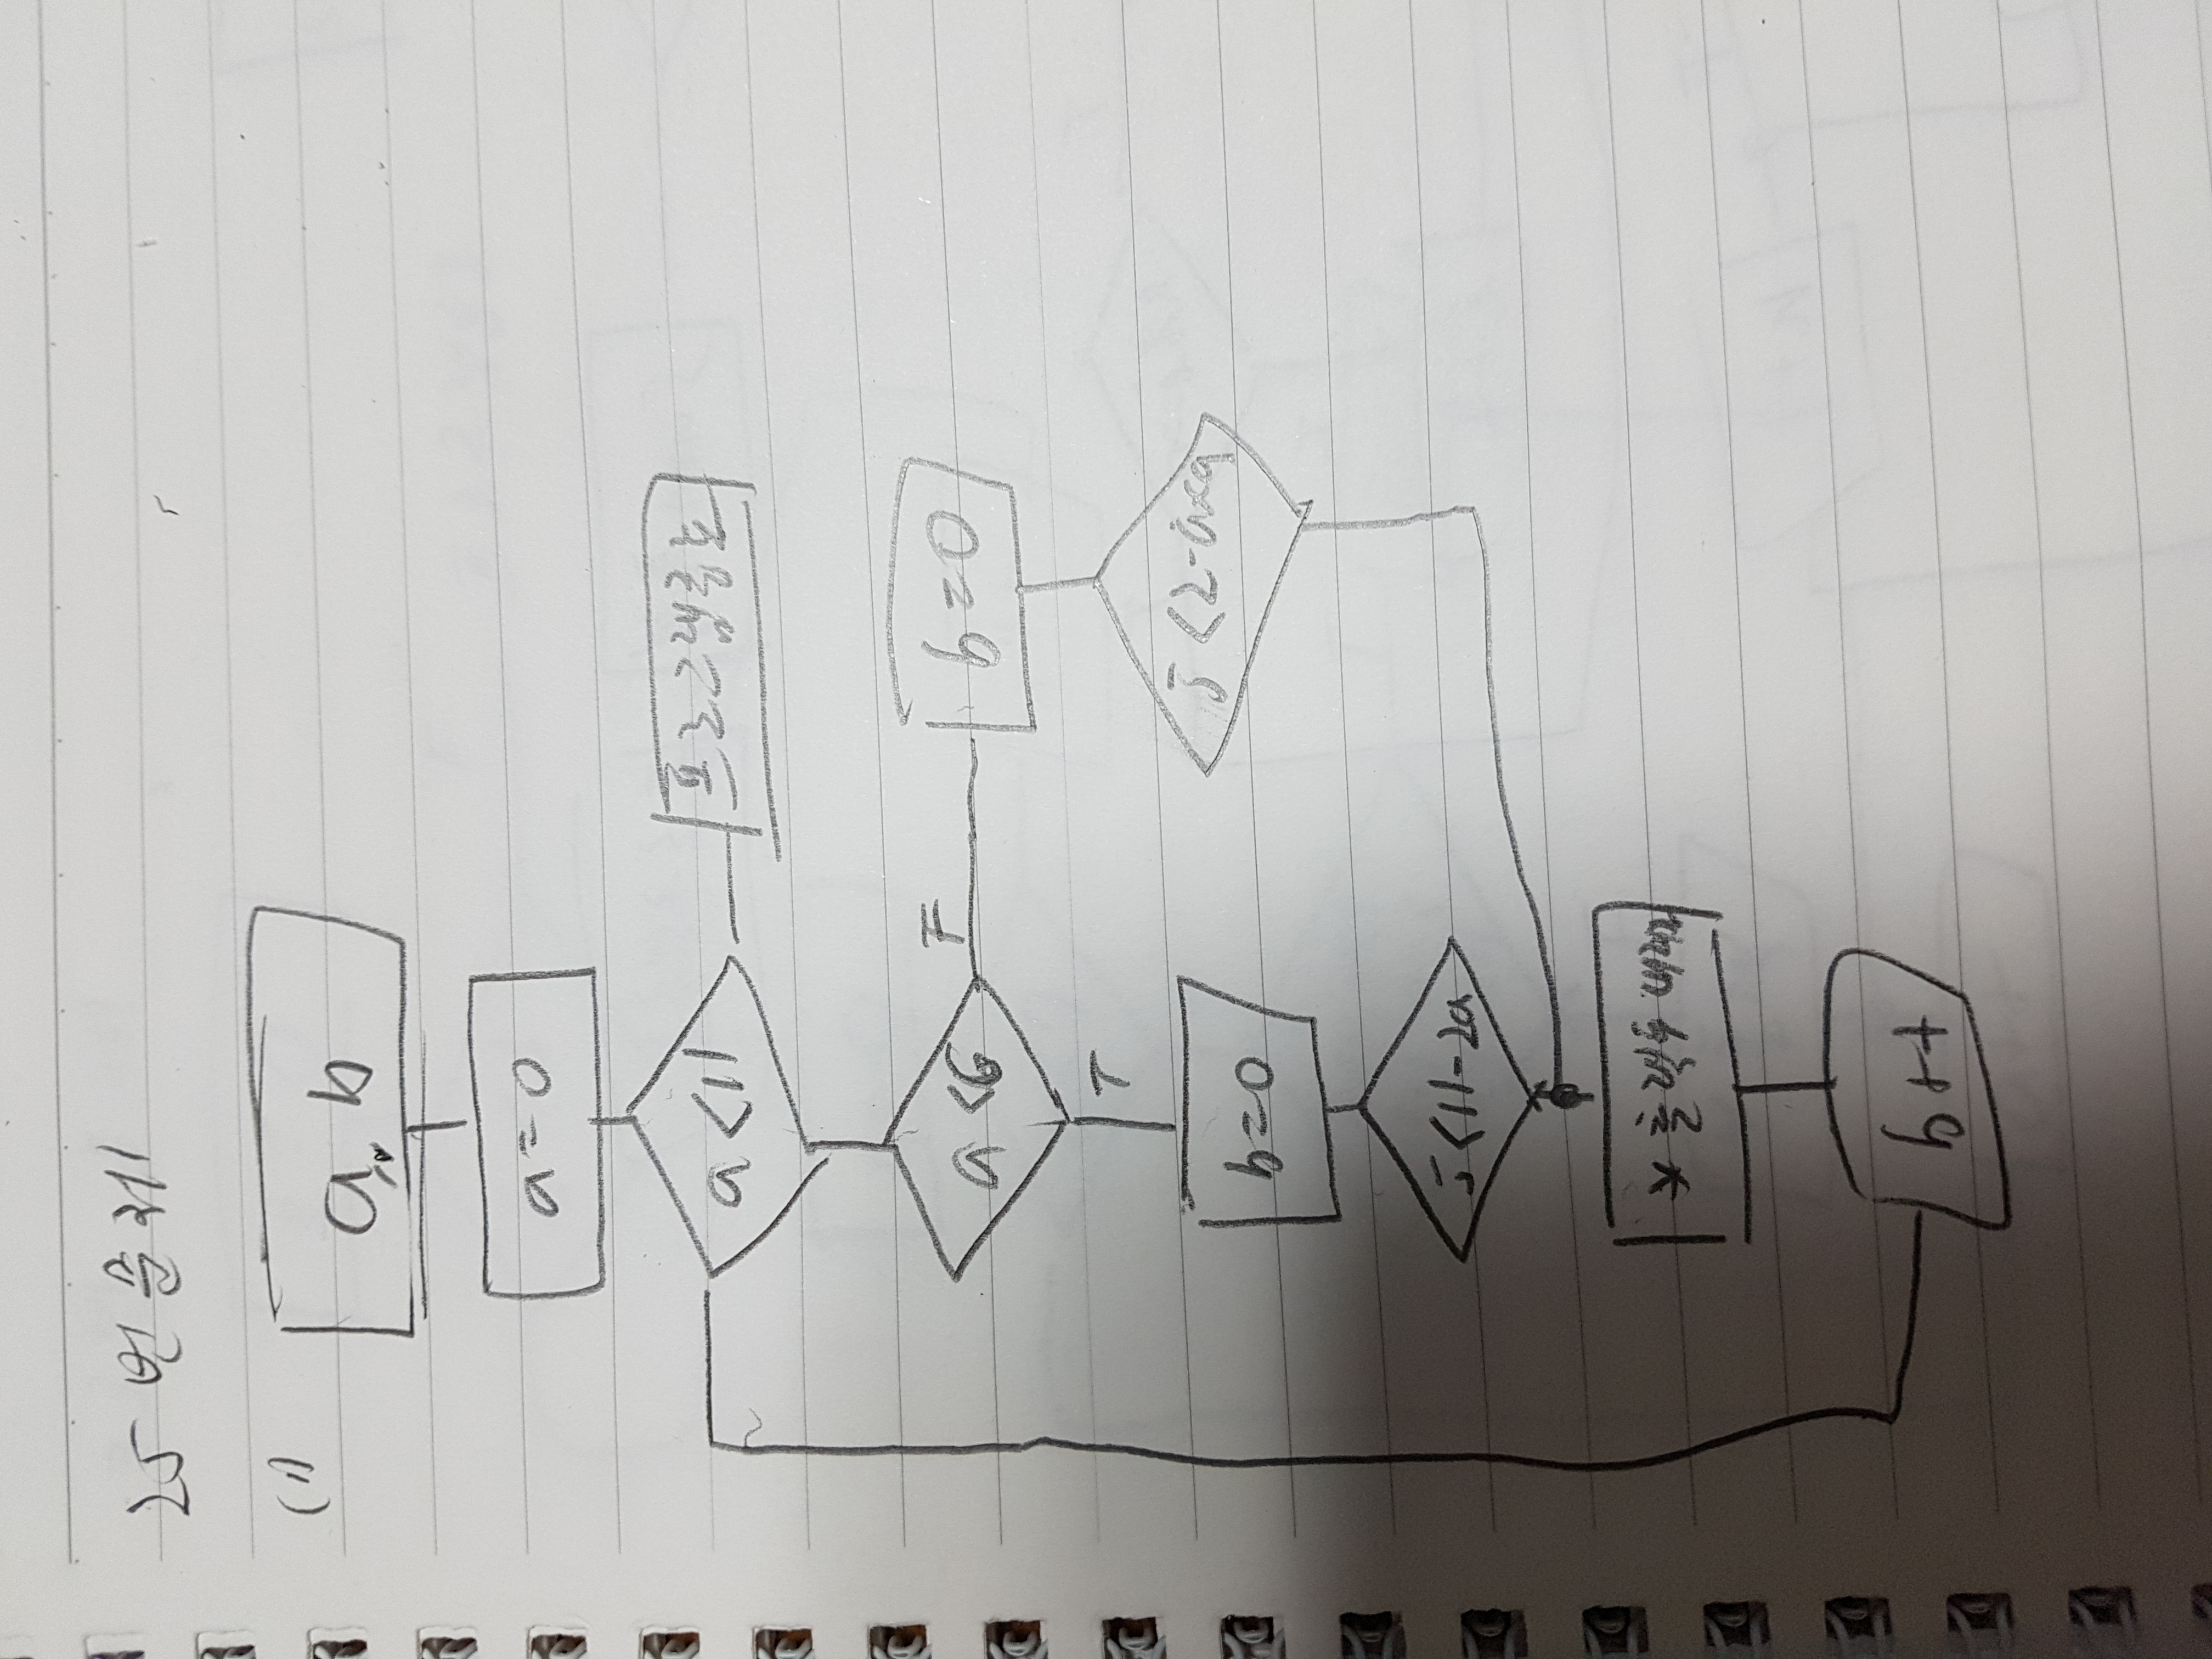 25번문제
(1)
a, b
a=0
a<11
프로그램종료
a<6
F
b=0
T
j<2-a×a
b=0
j<11-2a
* 출력후
b++